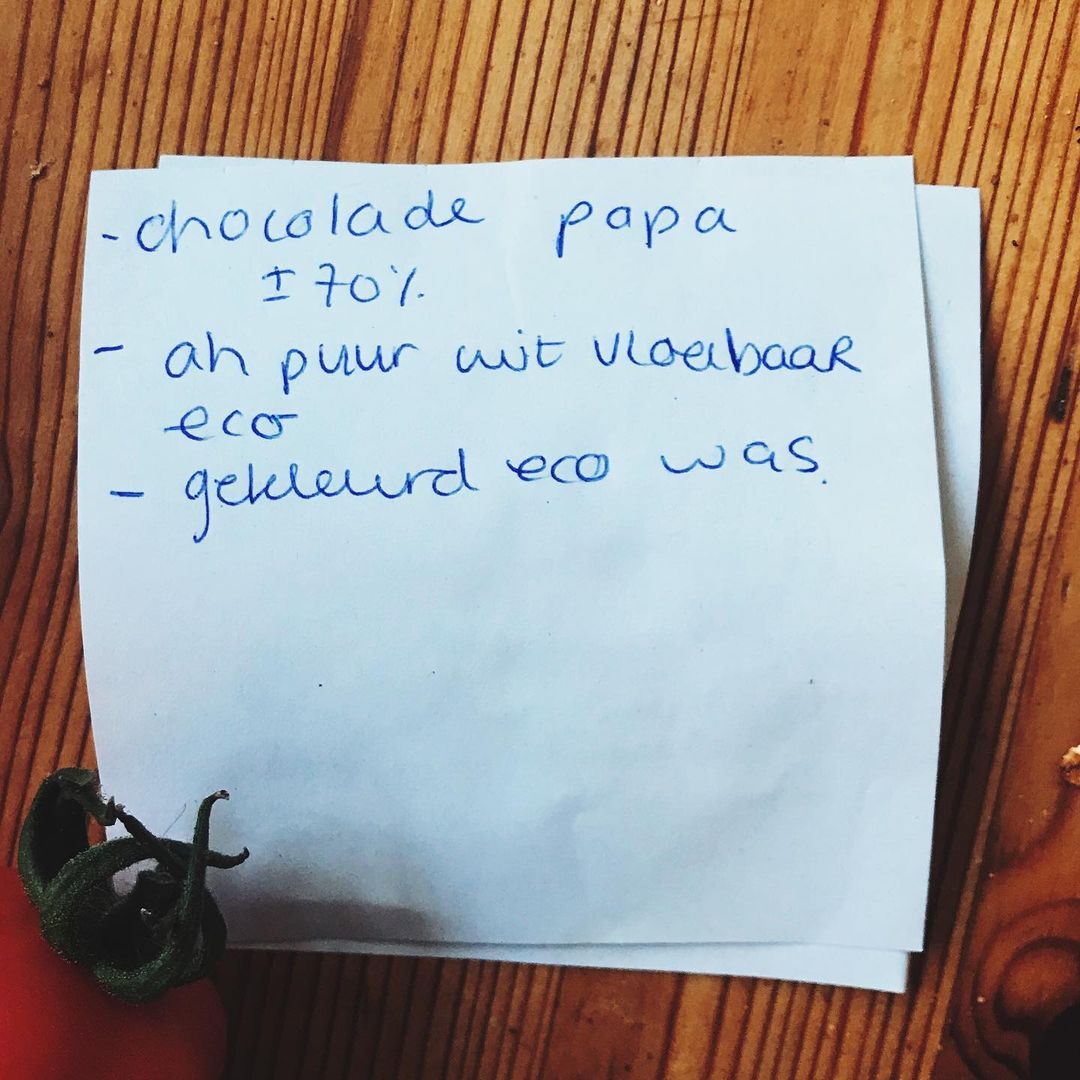 - chocolade papa
± 70%
- ah puur wit vloeibaar
eco
- gekleurd eco was.